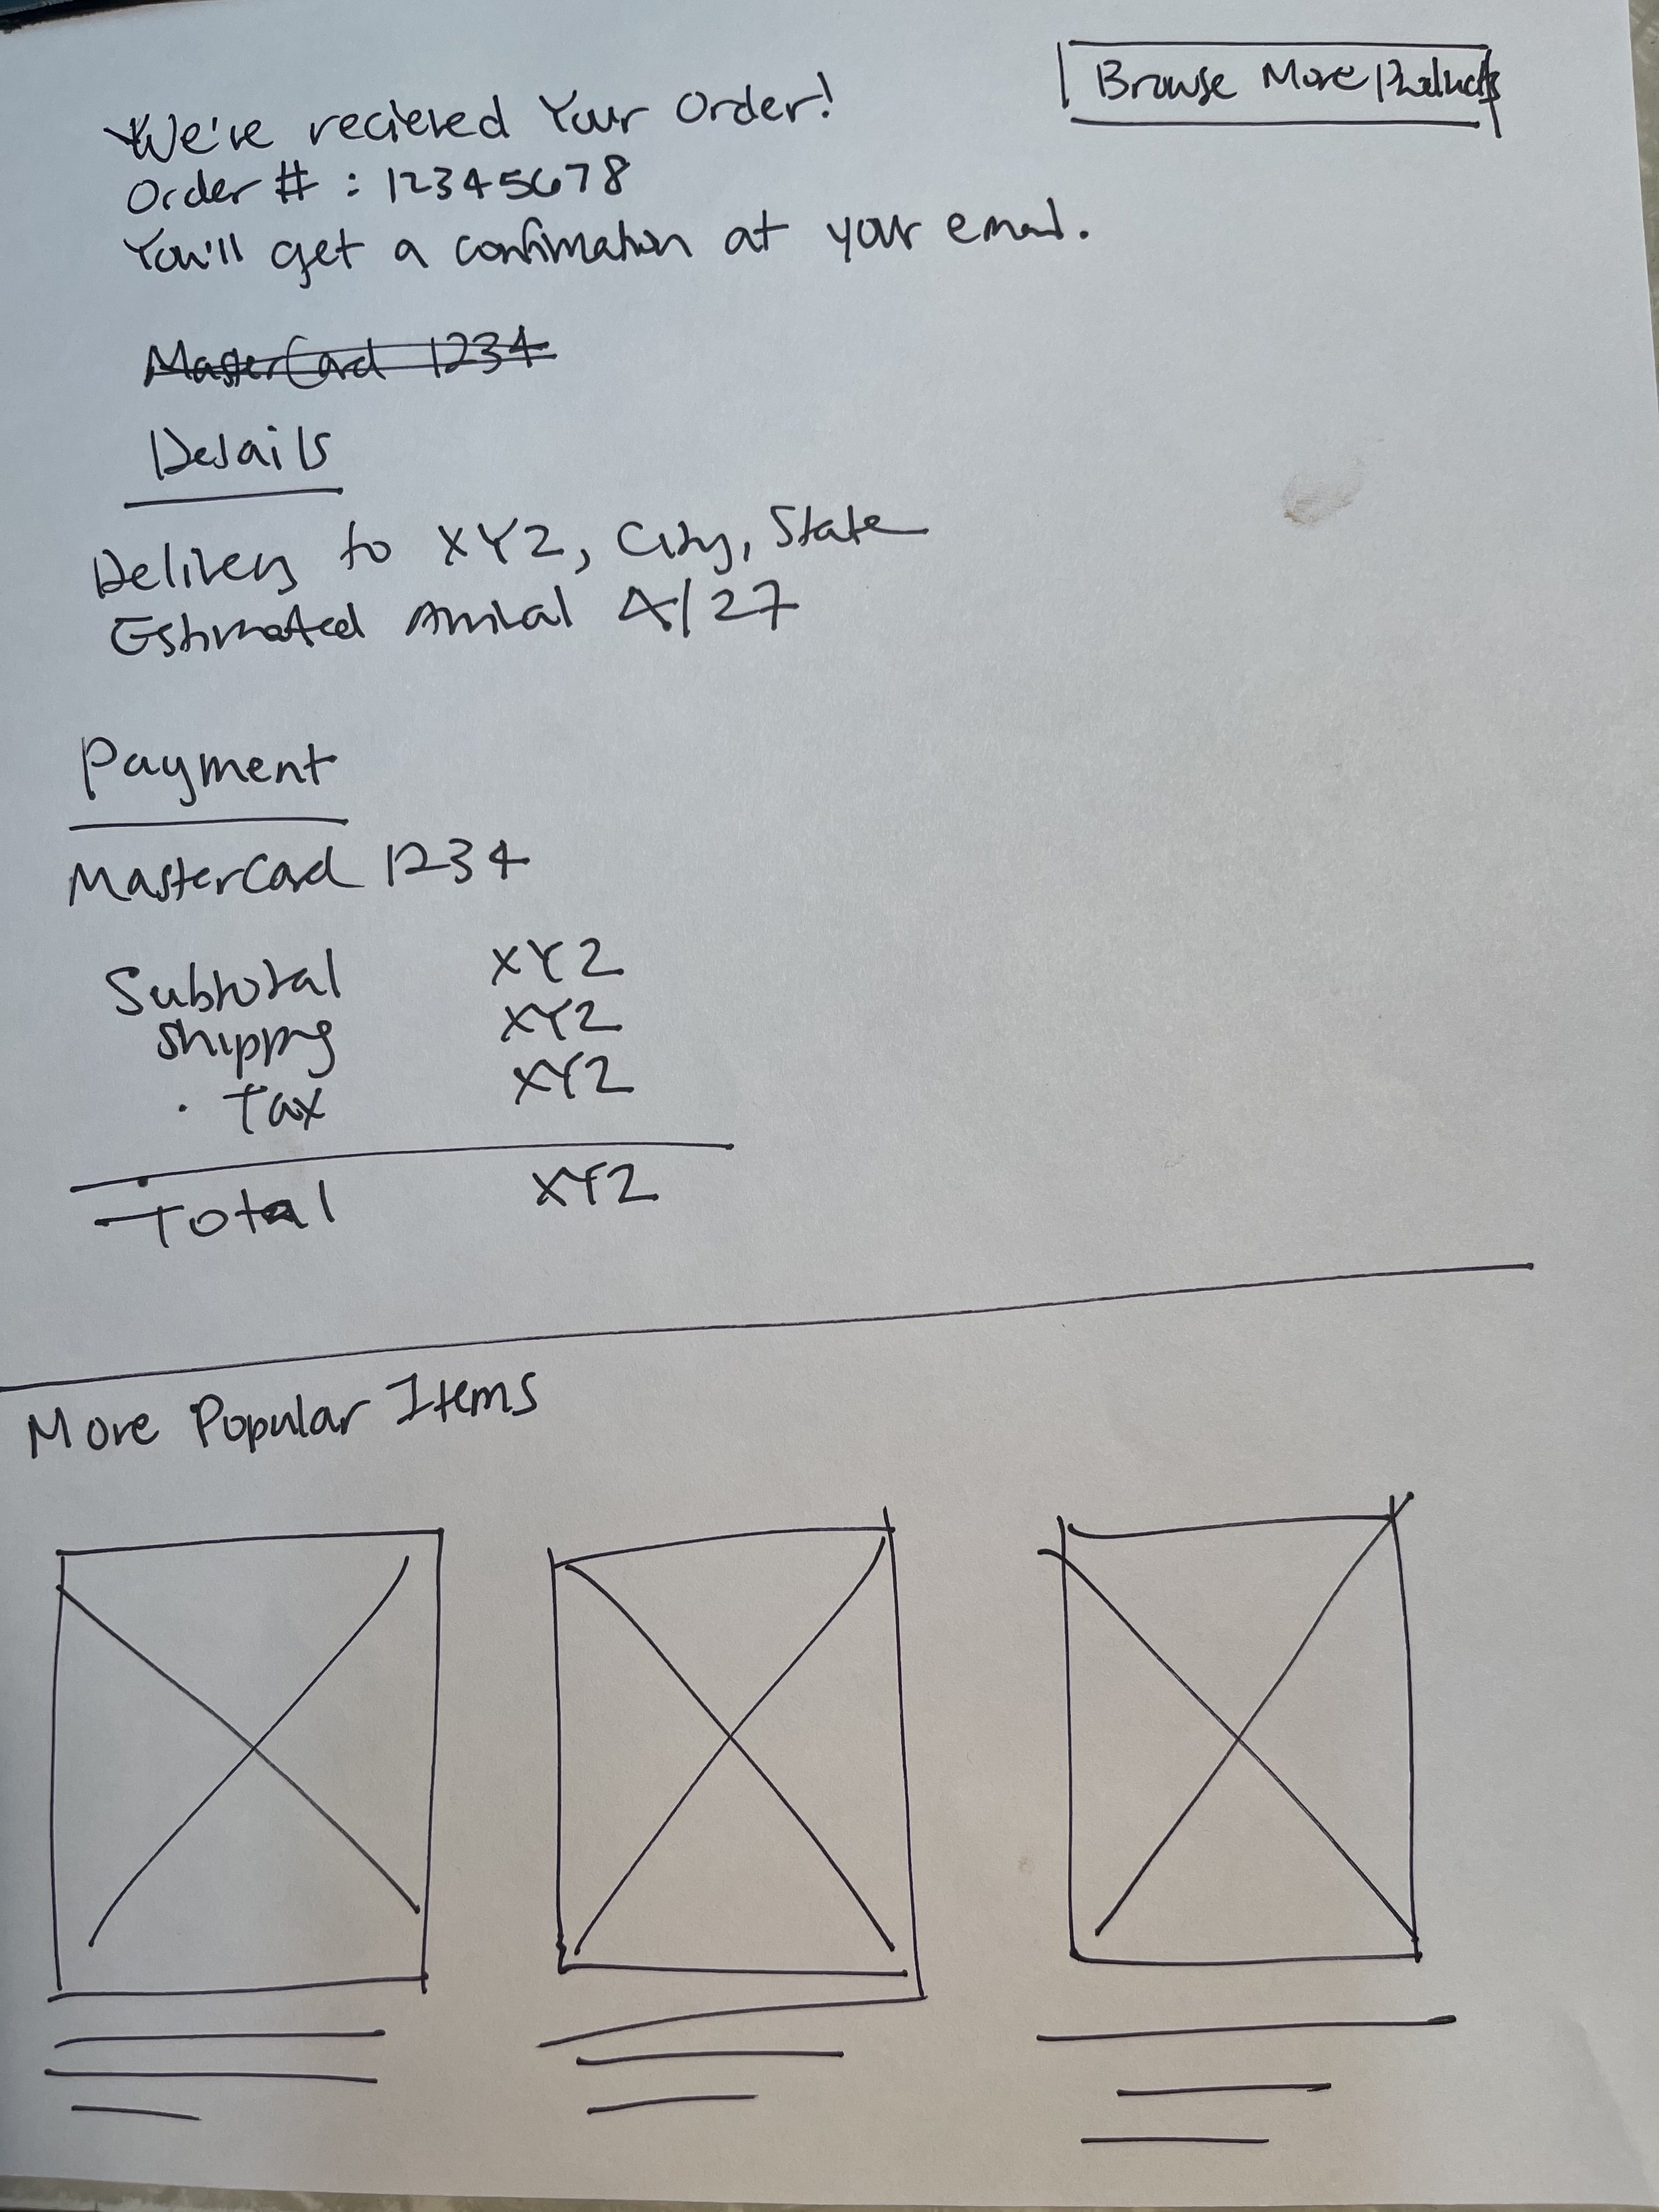 Browse More Products
We're recieved Your Order!
Order # : 12345678
You'll get a confirmation at your email.
MasterCard 1234
Details
Delivery to XYZ, City, State
Estimated Arrival 4/27
Payment
MasterCard 1234
Subtotal XYZ
Shipping XYZ
Tax XYZ
Total XYZ
More Popular Items